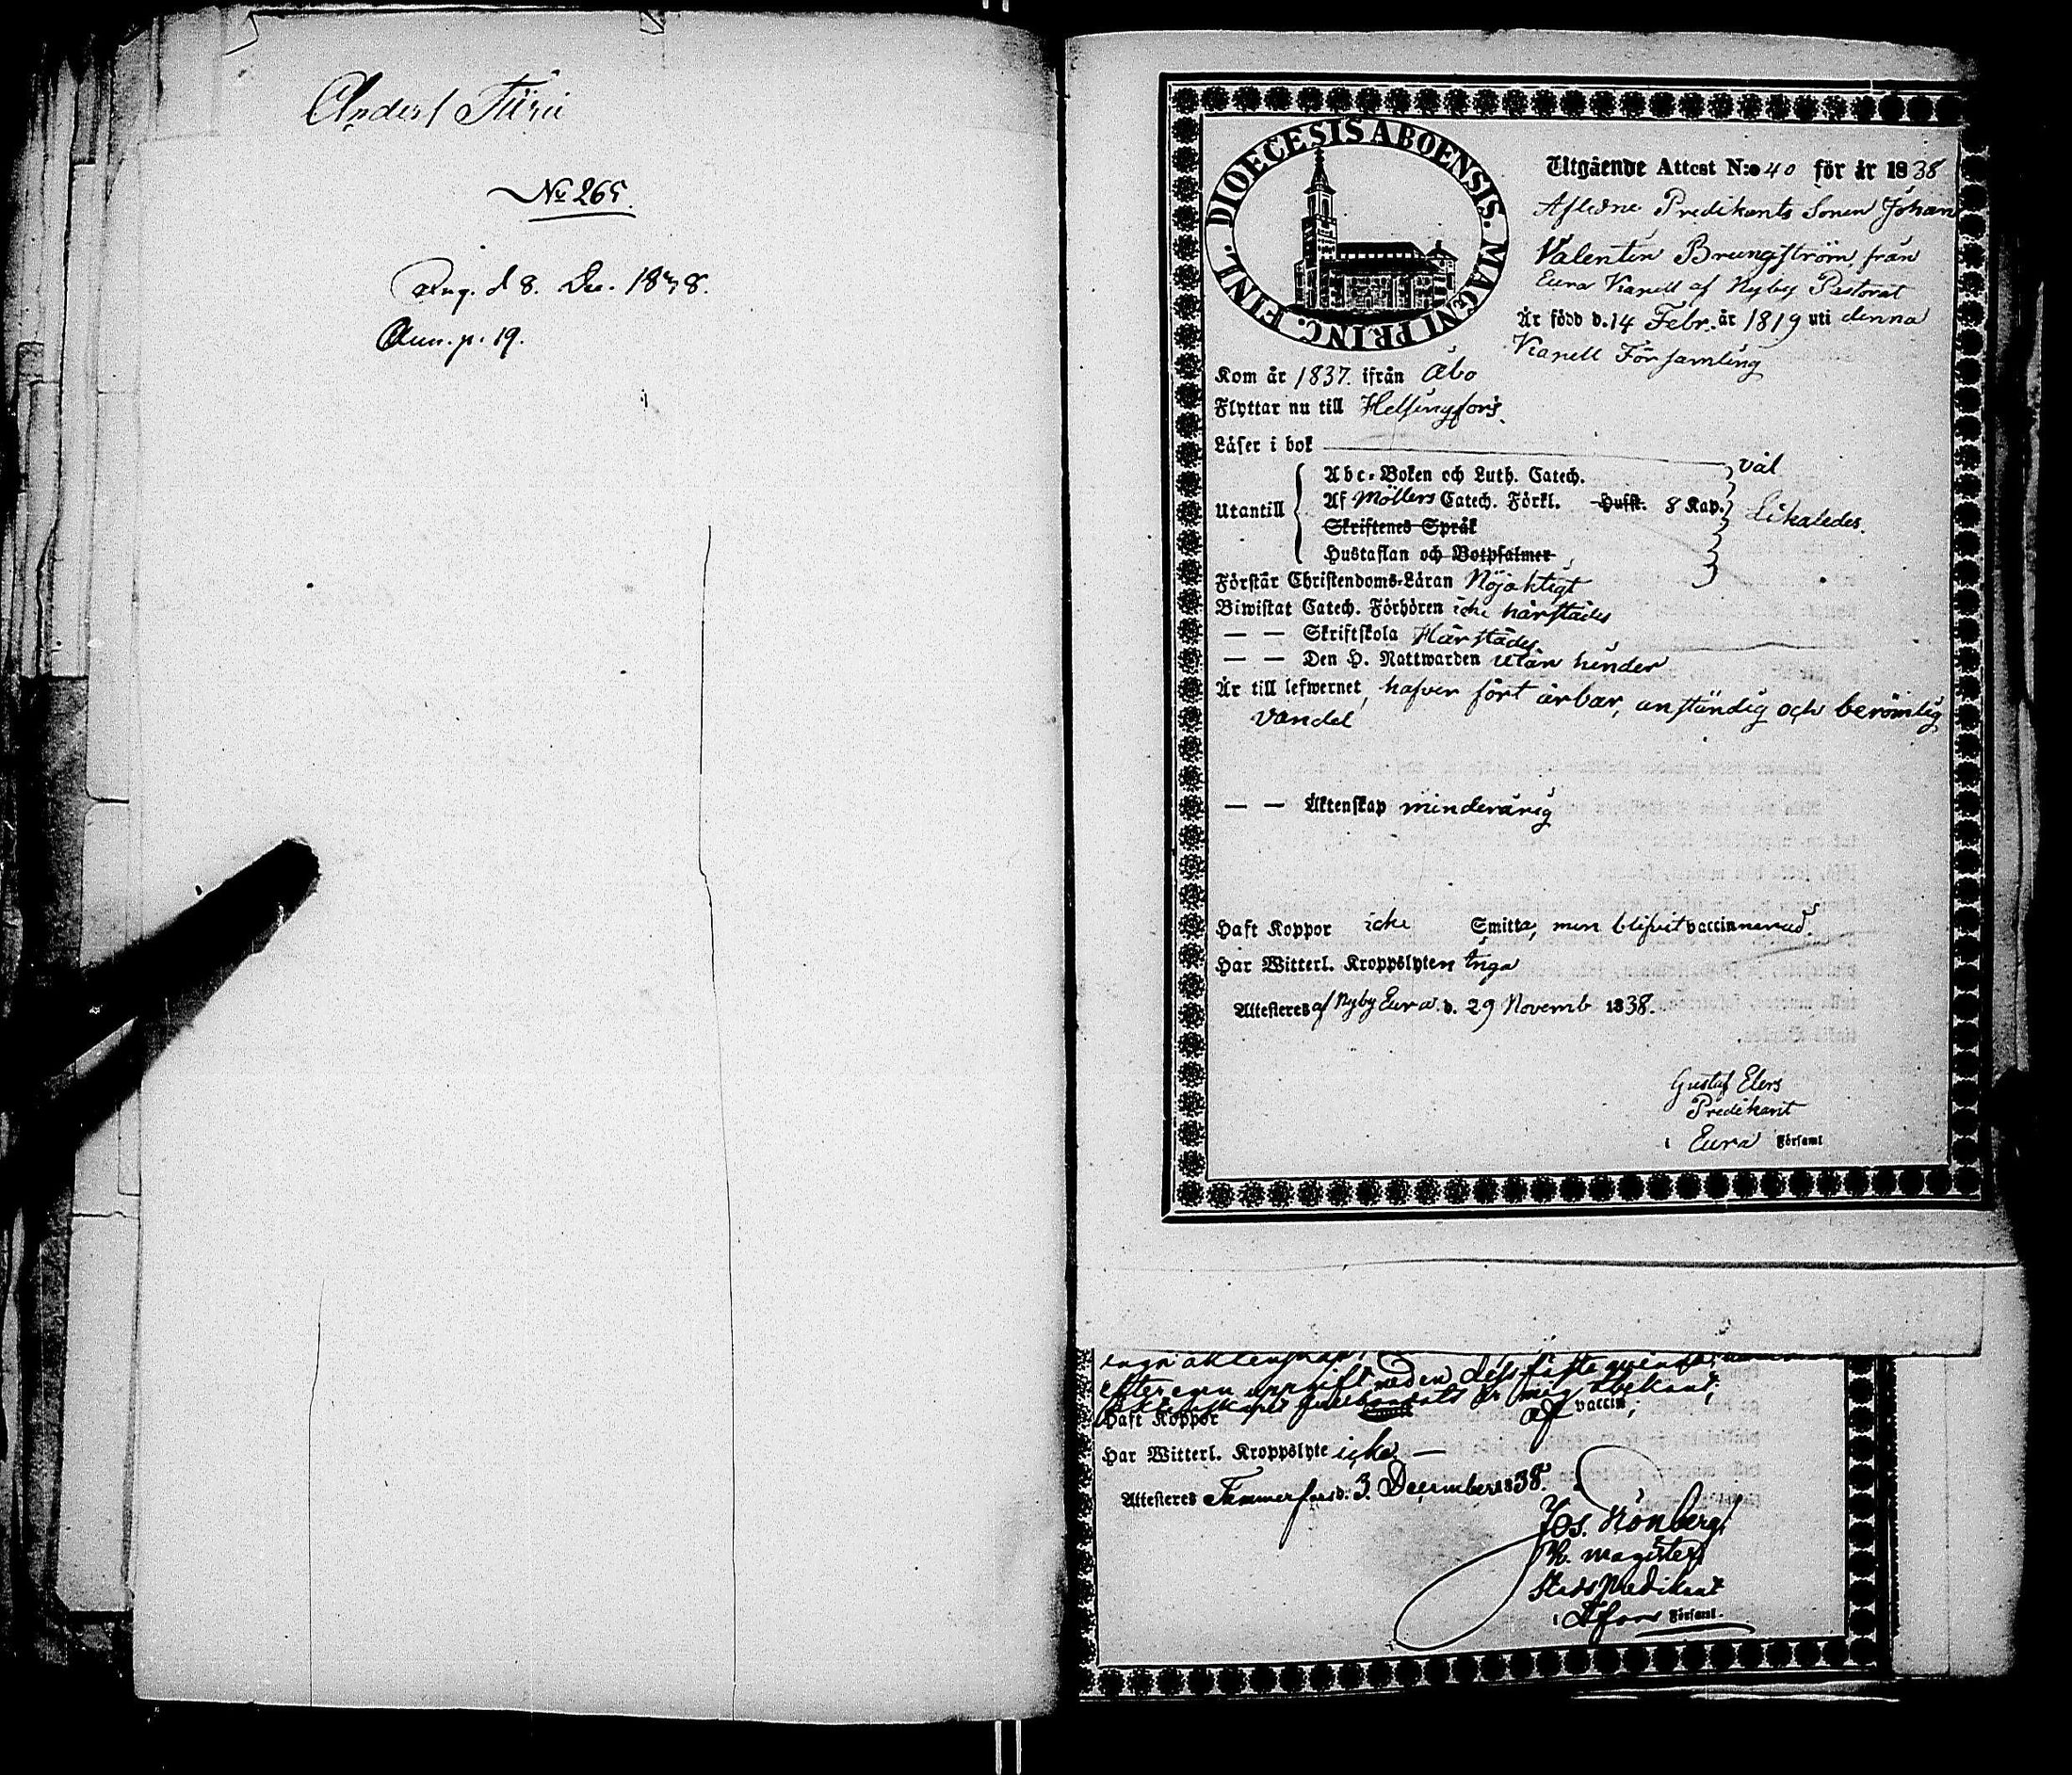 Anders Türü
No 265.
Aug. d 8. Dec. 1838.
Ann. p. 19.
DIOECESIS ABOENSIS. MAGNI PRINC. FINL.
Utgående Attest N:o 40 för år 1838
Afledne Predikants Sonen Johan
Valentin Brungström, från
Eura Kapell af Nyby Pastorat
Är född d. 14 Febr. år 1819 uti denna
Kapell Församling
Kom år 1837. ifrån Åbo
Flyttar nu till Helsingfors.
Läser i bok väl
Utantill
Abc-Boken och Luth. Catech.
Af Möllers Catech. Förkl. Hufst. 8 Kap. Likaledes.
Skriftenes Språk
Hustaflan och Botpsalmer
Förstår Christendoms-Läran Nöjaktigt
Biwistat Catech. Förhören icke härstädes
— — Skriftskola Härstädes.
— — Den H. Nattwarden utan hinder
Är till lefwernet, hafver fört ärbar, anständig och berömlig
vandel
— — Äktenskap minderårig
Haft Koppor icke Smitta, men blifvit vaccinnerad.
Har Witterl. Kroppslyten inga
Attesteres af Nyby Eura d. 29 Novemb 1838.
Gustaf Elers
Predikant
i Eura Församl
inga äktenskap
efter egen uppgift meden dess sista
är mig obekant,
Haft Koppor af vaccin;
Har Witterl. Kroppslyte icke —
Attesteres Tammerfors d. 3. December 1838.
Jos. Hönberg
Ph. magister
Stadspredikant
i Tfors Församl.